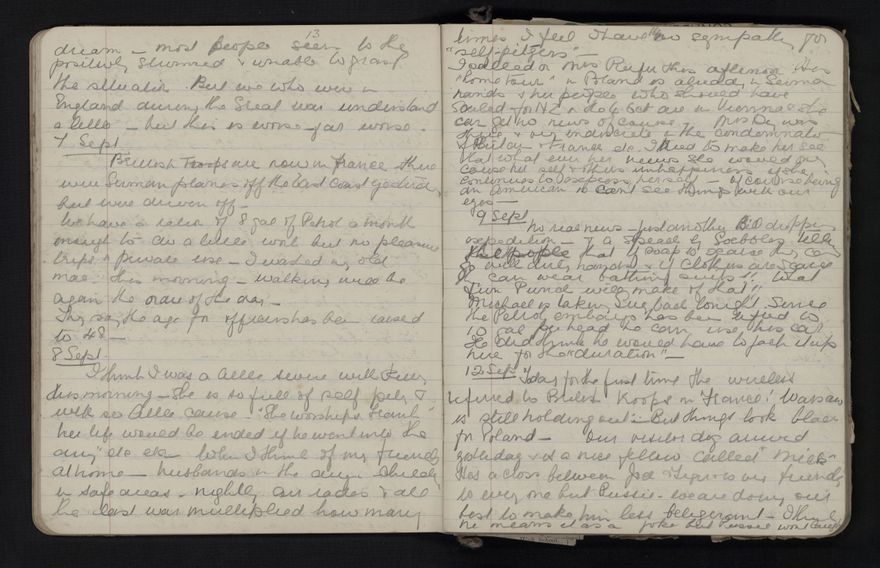 13
dream – most people seem to be
positively stunned & unable to grasp
the situation. But we who were in
England during the Great war understand
a little – but this is worse – far worse.
7 Sept
British Troops are now in France there
were German planes off the East coast yesterday
but were driven off –
We have a ration of 8 gal of Petrol a month
enough to do a little work but no pleasure
trips & private use – I washed my old
mac this morning – walking will be
again the order of the day –
They say the age for officers has been raised
to 48 –
8 Sept
I think I was a little severe with
this morning – She is so full of self pity &
with so little cause. "She worships
her life would be ended if he went into the
army" etc etc. When I think of my friends
at home – husbands in the army – children
in safe areas – nightly air raids & all
the last war multiplied how many
times I feel I have no sympathy for
"self-pityers" –
I called on Mrs this afternoon Her
"home town" in Poland is already in German
hands & her people who should have
sailed for N.Z. on the 6 Oct are in Vienna & she
can get no news of course – Mrs De was
there & very indiscrete in the condemnation
of Britain & France etc. I tried to make her see
that what ever her news she would only
cause her self & others unhappiness if she
continues to express herself so of course being
an American she cant see things with our
eyes –
9 Sept
No real news – just another Bill dropping
expedition – & a speech by Goebbels telling
the people that if soap is scarce they can
will and if clothes are scarce
they can wear bathing suits"! What
fun Punch will make of that"!
Michael is taking Sue back tonight. Since
the Petrol embargo has been lifted to
10 gal per head he can use his car
He did think he would have to jack it up
here for the "duration" –
12 Sep
Today for the first time the wireless
referred to British Troops in France! Warsaw
is still holding out – But things look black
for Poland – Our visitor dog arrived
yesterday & is a nice fellow called "Mick"
He's a cross between & is very friendly
to every one but Pussie – we are doing our
best to make him less beligerent – I think
he means it as a joke but Pussie wont